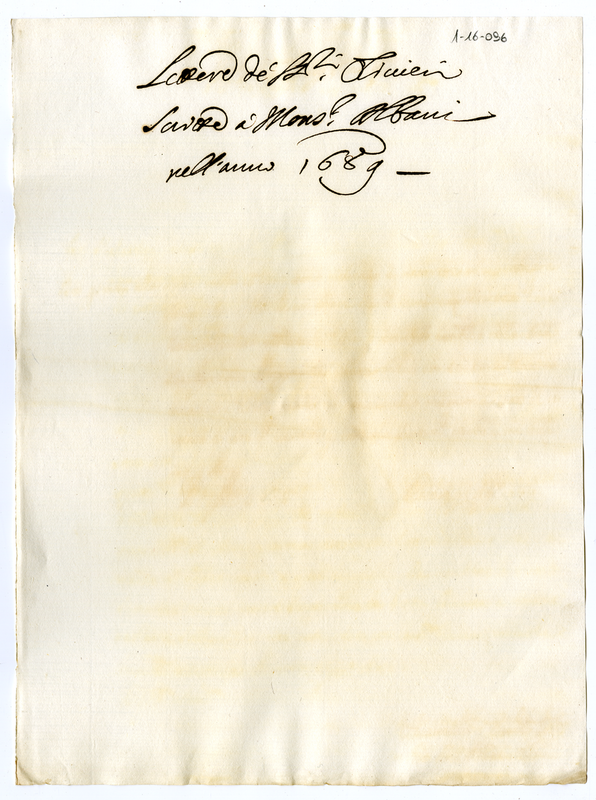 1-16-096
Lettere de' Sri. Olivieri
Scritte à Monsr. Albani
nell'anno 1689